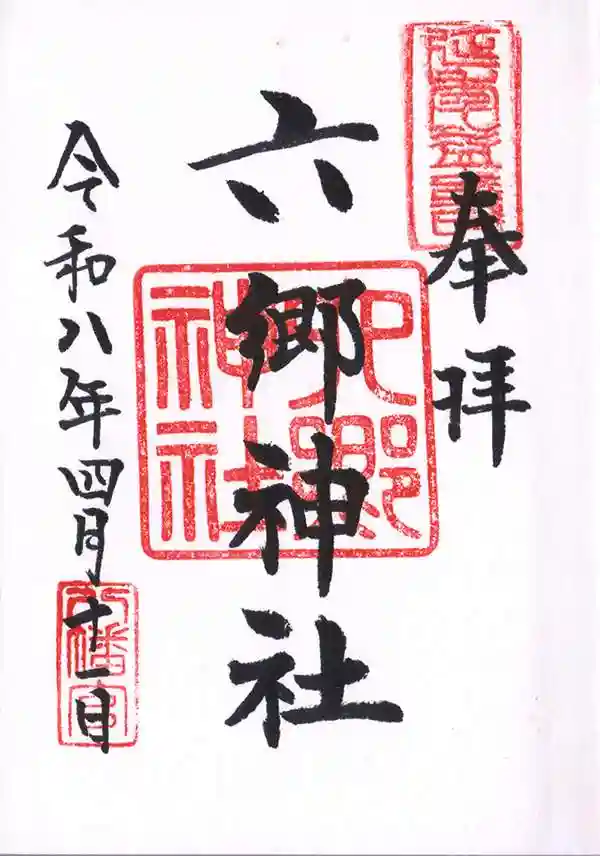 奉拝
六郷神社
令和八年四月十一日
六郷神社
八幡宮